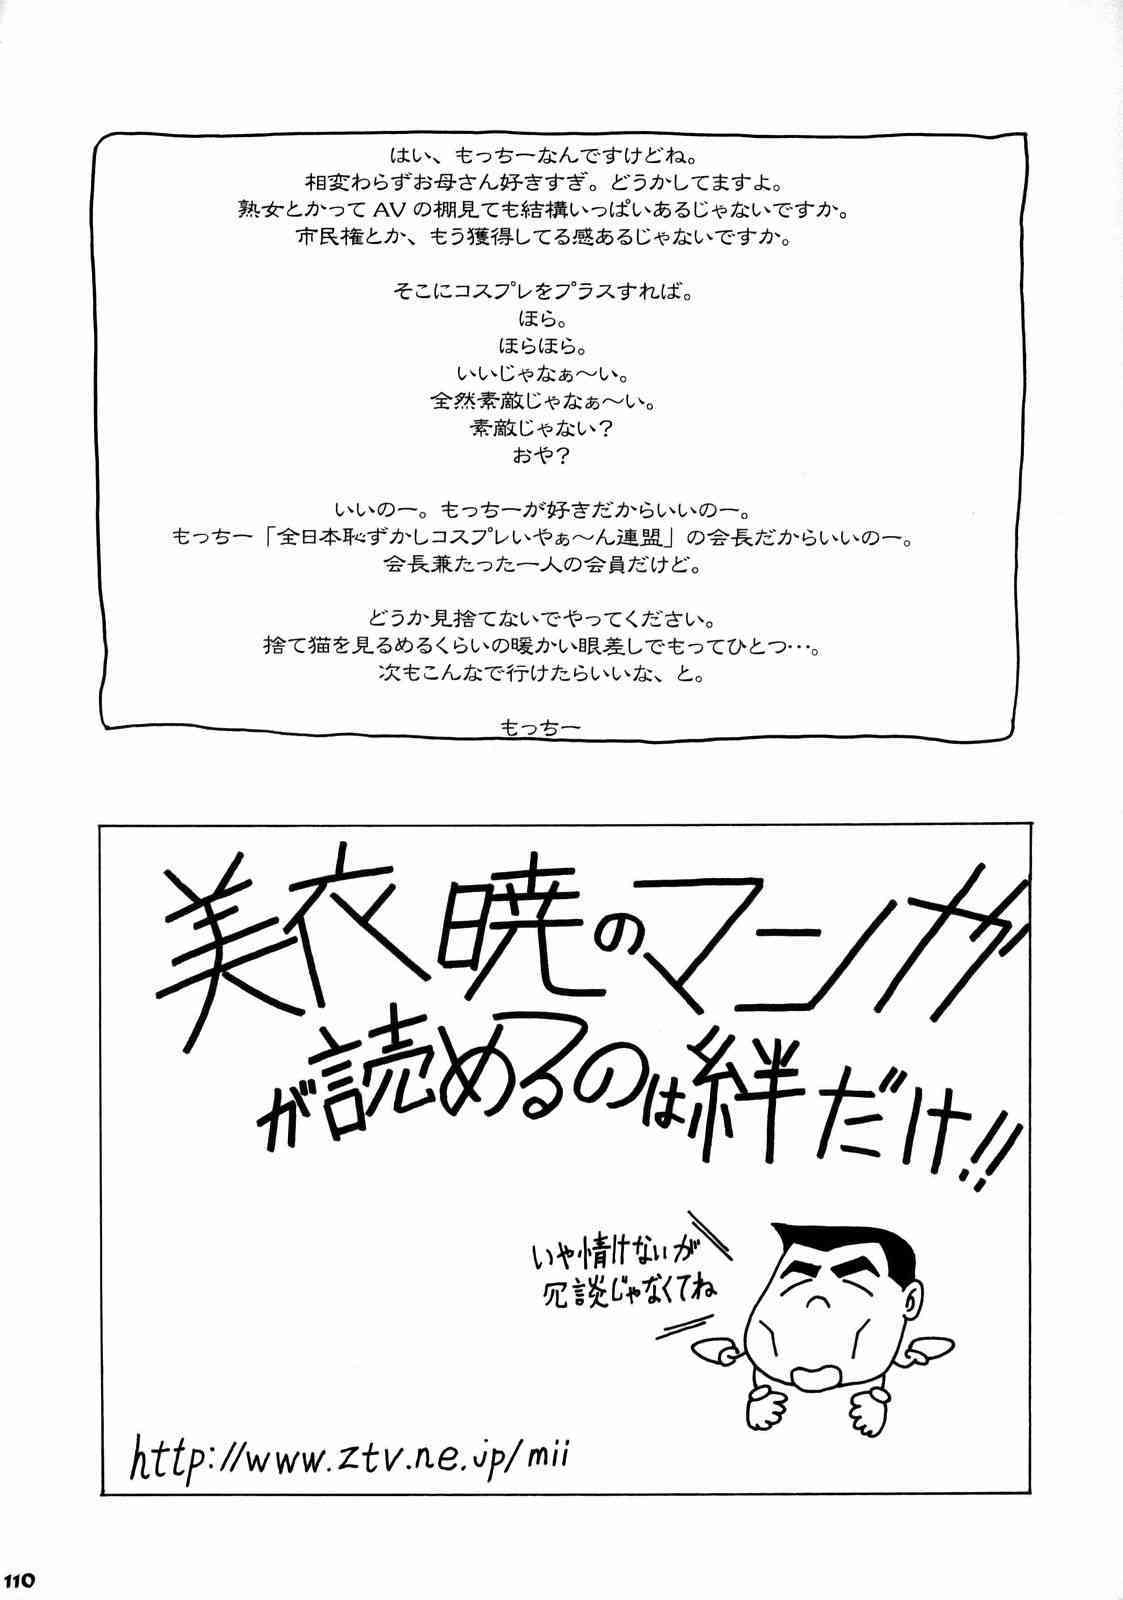 はい、もっちーなんですけどね。
相変わらずお母さん好きすぎ。どうかしてますよ。
熟女とかって AV の棚見ても結構いっぱいあるじゃないですか。
市民権とか、もう獲得してる感あるじゃないですか。
そこにコスプレをプラスすれば。
ほら。
ほらほら。
いいじゃなぁ～い。
全然素敵じゃなぁ～い。
素敵じゃない？
おや？
いいのー。もっちーが好きだからいいのー。
もっちー「全日本恥ずかしコスプレいやぁ～ん連盟」の会長だからいいのー。
会長兼たった一人の会員だけど。
どうか見捨てないでやってください。
捨て猫を見るめるくらいの暖かい眼差しでもってひとつ…。
次もこんなで行けたらいいな、と。
もっちー
美衣暁のマンガ
が読めるのは絆だけ!!
いや情けないが
冗談じゃなくてね
http://www.ztv.ne.jp/mii
110